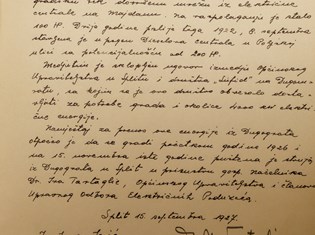 godinu dok dovršenu mrežu iz električne
centrale na Majdanu, na raspolaganju je stalo
100 HP. Dvije godine prije toga 1922, 8. septembra
stavljena je u pogon Dieselova centrala u Poljanoj
ulici sa potencijalnošću od 200 HP.
Medjutim je sklopljen ugovor izmedju Općinskog
Upraviteljstva u Splitu i društva „Sufid" na Dugom
ratu, sa kojim se je ovo društvo obvezalo dostav-
ljati za potrebe grada i okolice 4000 KW električ-
ne energije.
Namještaj za prenos ove energije iz Dugograta
otpočeo je da se gradi početkom godine 1926 i
na 15. novembra iste godine puštena je struja
iz Dugograta u Split u prisutnosti gosp. načelnika
Dr. Iva Tartaglie, Općinskog Upraviteljstva i članova
Upravnog Odbora Električnih Poduzeća.
Split 15. septembra 1927.